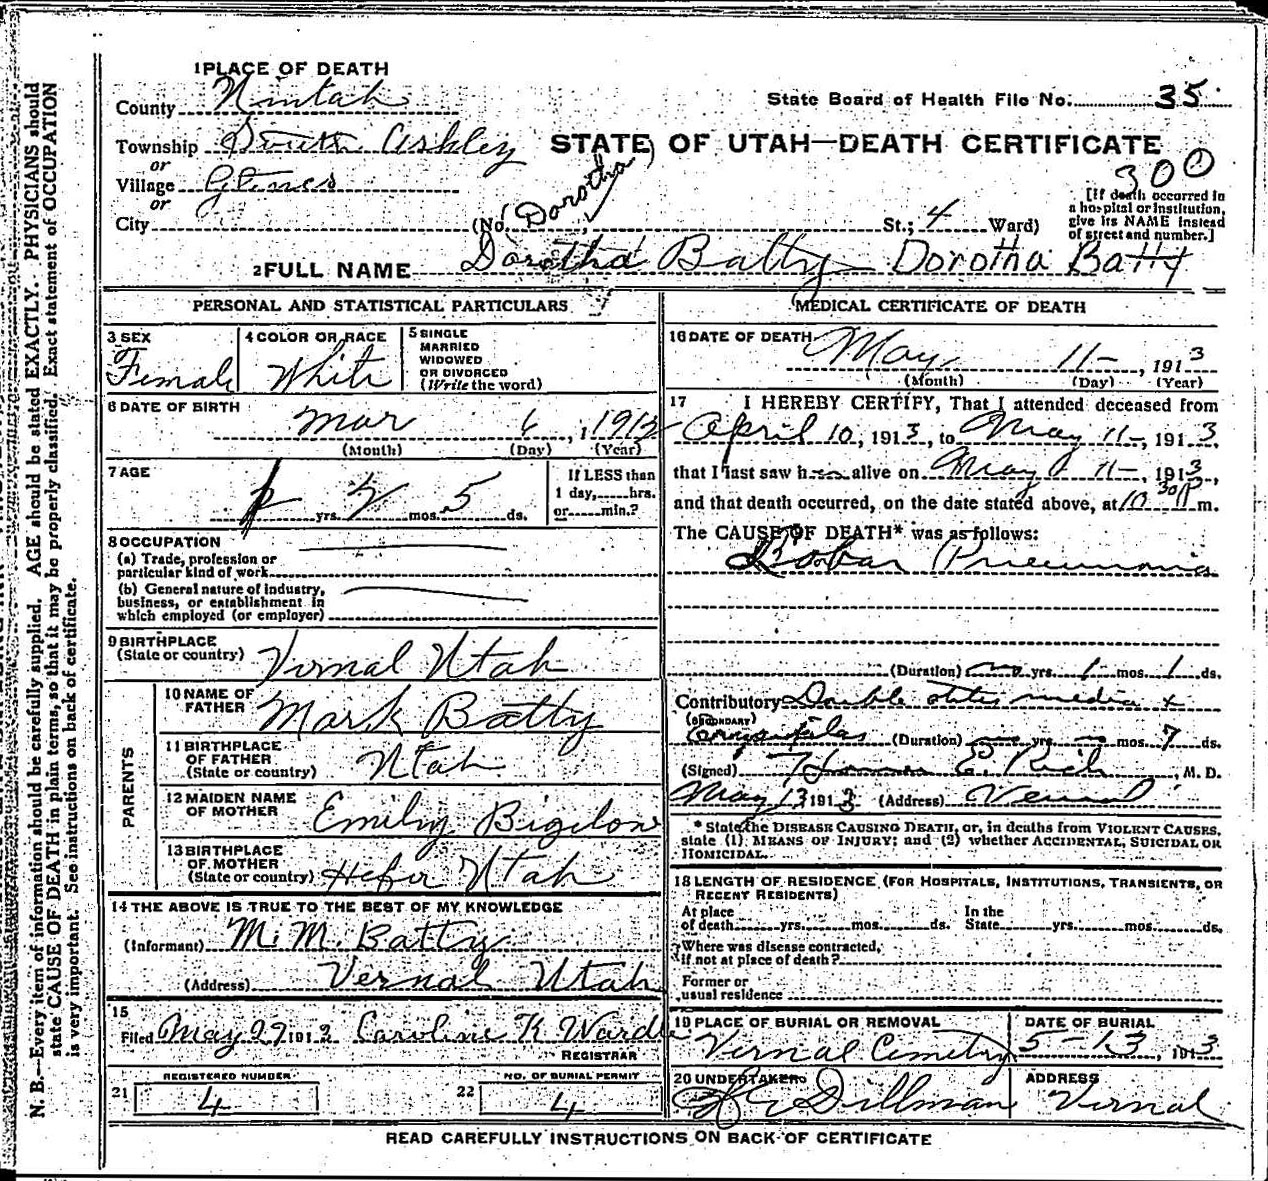 1 PLACE OF DEATH
County Uintah
State Board of Health File No. 35
Township South Ashley
STATE OF UTAH—DEATH CERTIFICATE
or
Village Glines
300
or
[If death occurred in a hospital or institution, give its NAME instead of street and number.]
City
(No. Dorotha St.; 4 Ward)
2 FULL NAME Dorotha Batty Dorotha Batty
PERSONAL AND STATISTICAL PARTICULARS
3 SEX
Female
4 COLOR OR RACE
White
5 SINGLE
MARRIED
WIDOWED
OR DIVORCED
(Write the word)
6 DATE OF BIRTH
Mar 6, 1913
(Month) (Day) (Year)
7 AGE
yrs. 2 mos. 5 ds.
If LESS than
1 day, hrs.
or min.?
8 OCCUPATION
(a) Trade, profession or
particular kind of work
(b) General nature of industry,
business, or establishment in
which employed (or employer)
9 BIRTHPLACE
(State or country) Vernal Utah
PARENTS
10 NAME OF
FATHER Mark Batty
11 BIRTHPLACE
OF FATHER
(State or country) Utah
12 MAIDEN NAME
OF MOTHER Emily Bigelow
13 BIRTHPLACE
OF MOTHER
(State or country) Heber Utah
14 THE ABOVE IS TRUE TO THE BEST OF MY KNOWLEDGE
(Informant) M. M. Batty
(Address) Vernal Utah
15
Filed May 27 1913 Caroline K Wardle
REGISTRAR
21 REGISTERED NUMBER
4
22 NO. OF BURIAL PERMIT
4
MEDICAL CERTIFICATE OF DEATH
16 DATE OF DEATH
May 11-, 1913
(Month) (Day) (Year)
17 I HEREBY CERTIFY, That I attended deceased from
April 10, 1913, to May 11-, 1913,
that I last saw her alive on May 11-, 1913,
and that death occurred, on the date stated above, at 10 30 P m.
The CAUSE OF DEATH* was as follows:
Lobar Pneumonia
(Duration) yrs. 1 mos. 1 ds.
Contributory Double otitis media +
(SECONDARY)
Erysipelas (Duration) yrs. mos. 7 ds.
(Signed) Homer E. Rich, M. D.
May 13 1913 (Address) Vernal
* State the DISEASE CAUSING DEATH, or, in deaths from VIOLENT CAUSES,
state (1) MEANS OF INJURY; and (2) whether ACCIDENTAL, SUICIDAL OR
HOMICIDAL.
18 LENGTH OF RESIDENCE (FOR HOSPITALS, INSTITUTIONS, TRANSIENTS, OR
RECENT RESIDENTS)
At place
of death yrs. mos. ds.
In the
State yrs. mos. ds.
Where was disease contracted,
if not at place of death?
Former or
usual residence
19 PLACE OF BURIAL OR REMOVAL
Vernal Cemetry
DATE OF BURIAL
5-13, 1913
20 UNDERTAKER
Dillman
ADDRESS
Vernal
READ CAREFULLY INSTRUCTIONS ON BACK OF CERTIFICATE
N. B.—Every item of information should be carefully supplied. AGE should be stated EXACTLY. PHYSICIANS should
state CAUSE OF DEATH in plain terms, so that it may be properly classified. Exact statement of OCCUPATION
is very important. See instructions on back of certificate.